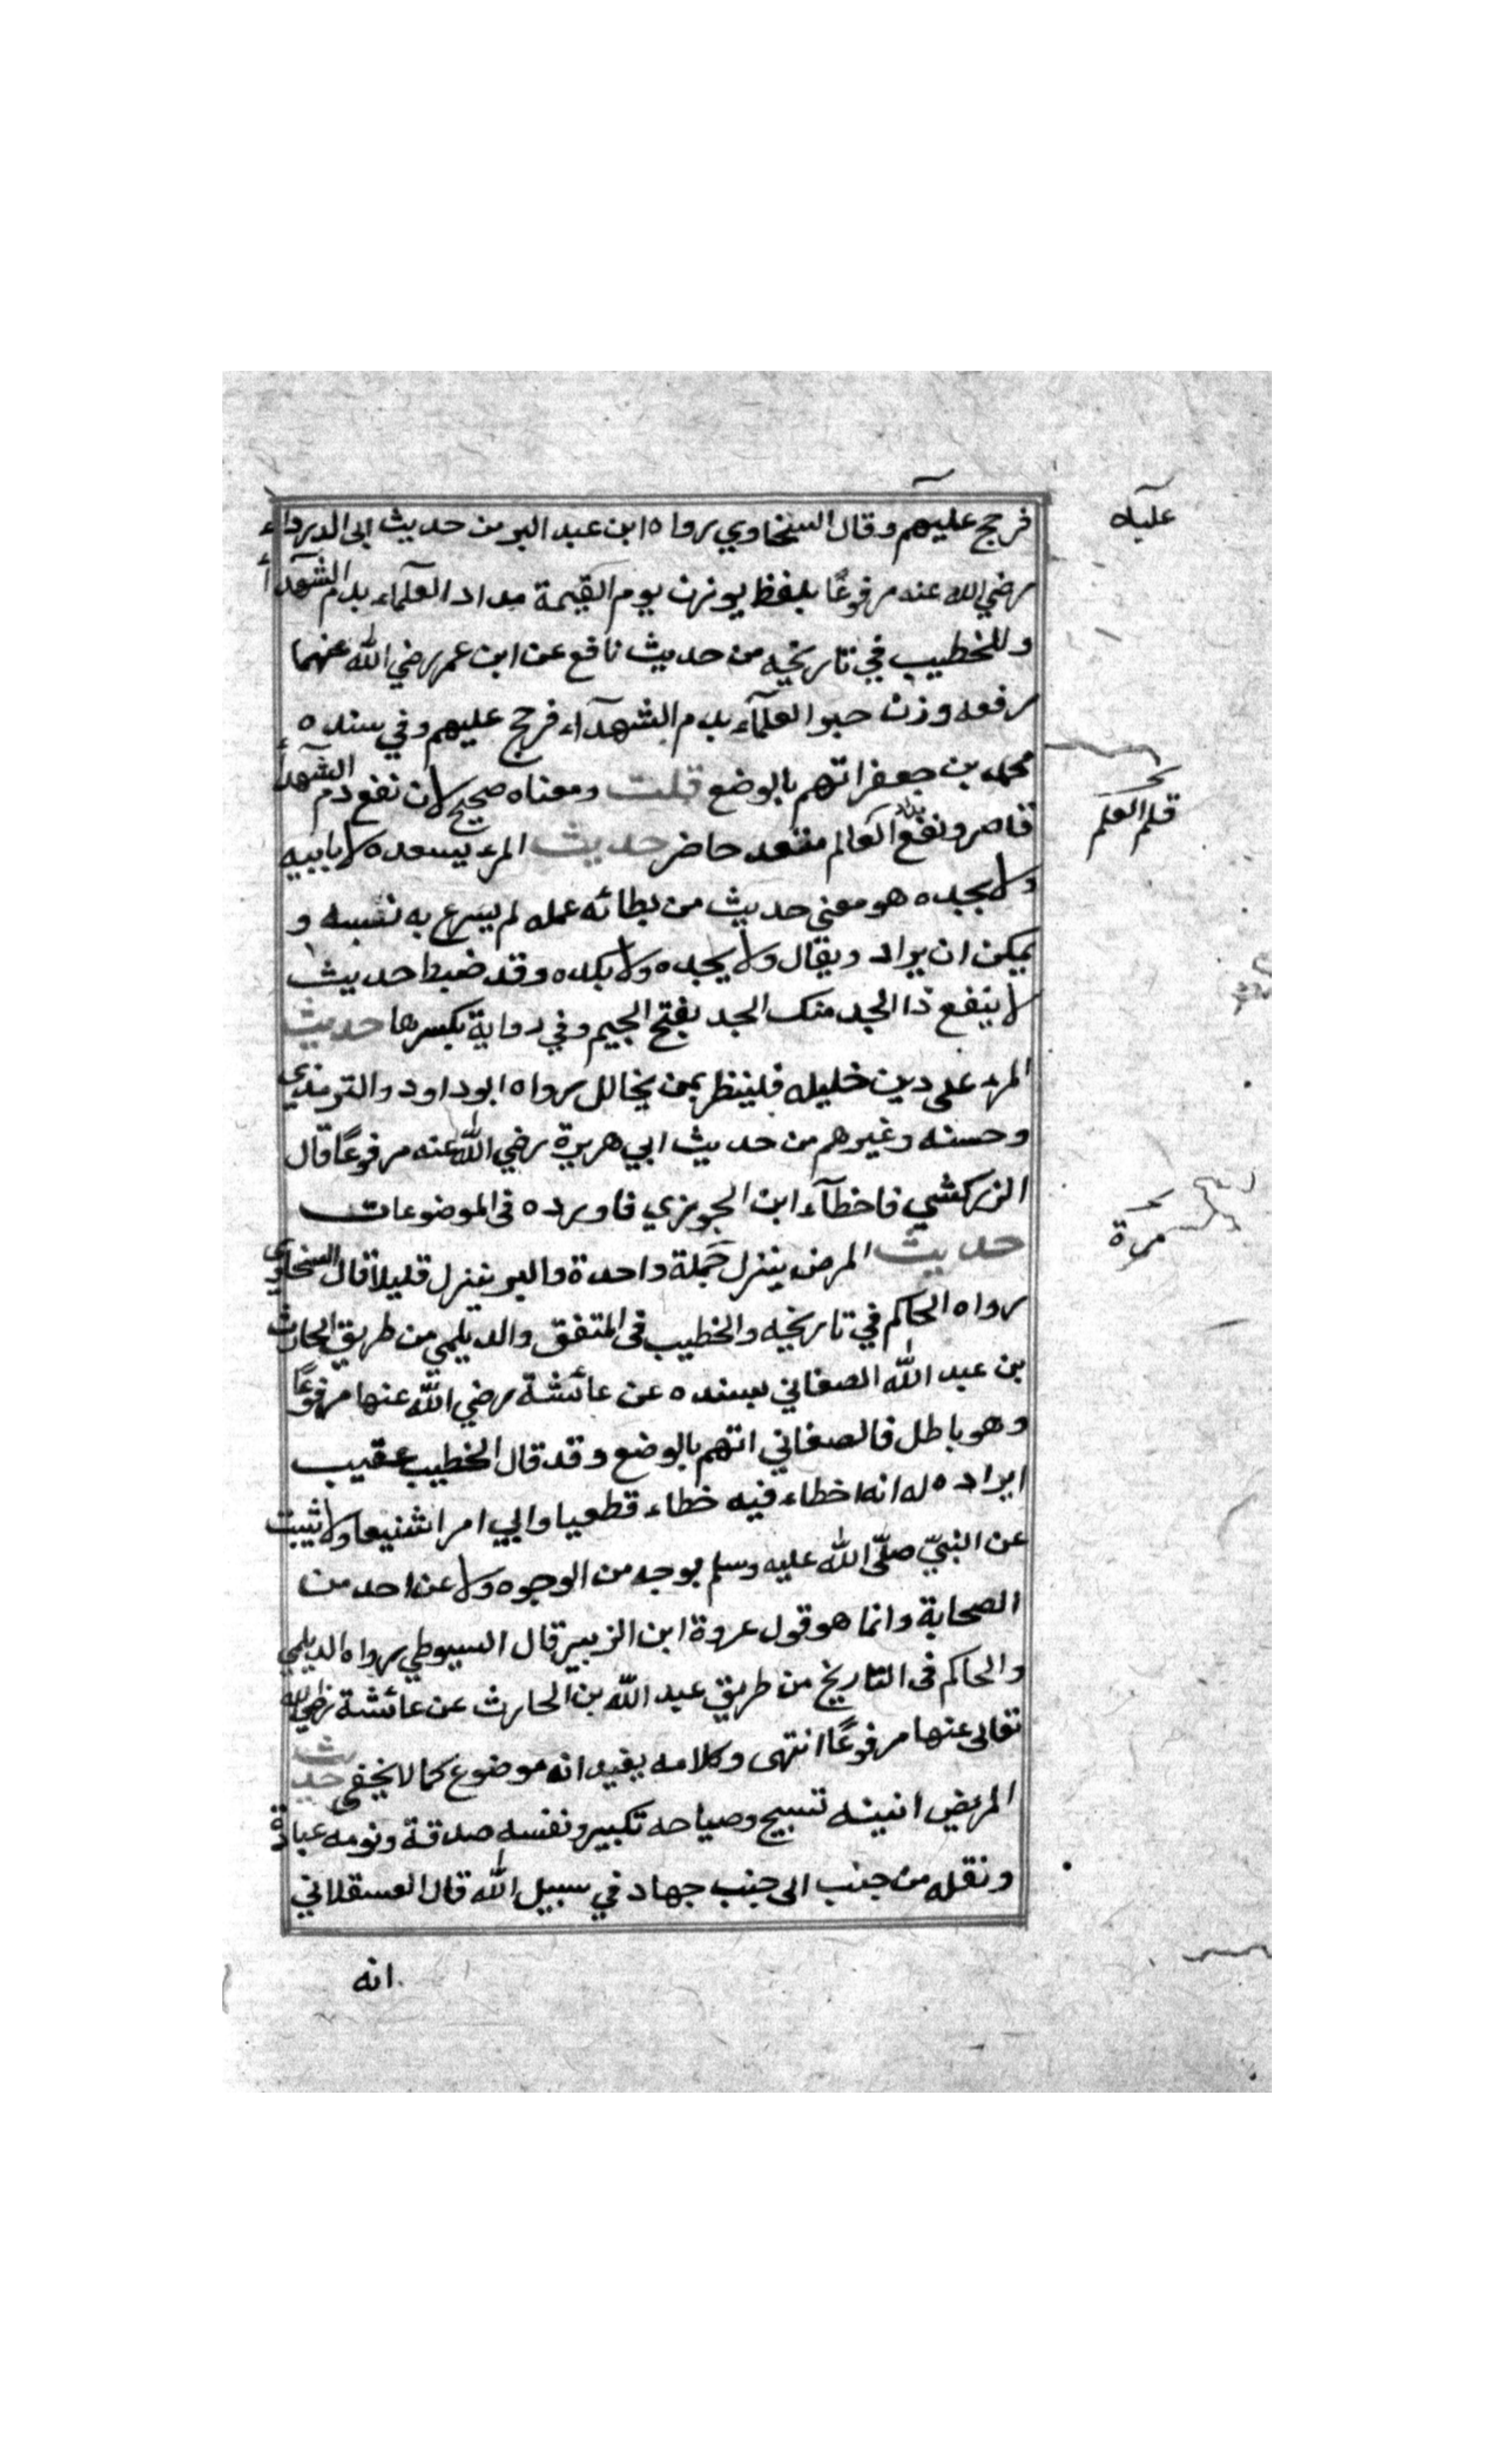 فرجح عليهم وقال السخاوي رواه ابن عبد البر من حديث ابى الدرداء
رضي الله عنه مرفوعًا بلفظ يوزن يوم القيمة مداد العلمآء بدم الشهدآء
وللخطيب في تاريخه من حديث نافع عن ابن عمر رضي الله عنهما
رفعه وزن حبر العلمآء بدم الشهدآء فرجح عليهم وفي سنده
محمد بن جعفر اتهم بالوضع قلت ومعناه صحيح لان نفع دم الشهدآء
قاصر ونفع العالم متعد حاضر حديث المرء يسعده لا بابيه
ولا بجده هو معنى حديث من بطائه عمله لم يسرع به نفسه و
يمكن ان يراد ويقال ولا يجده ولا بكده وقد ضبط حديث
لا ينفع ذا الجد منك الجد بفتح الجيم وفي رواية بكسرها حديث
المرء على دين خليله فلينظر بمن يخالل رواه ابوداود والترمذي
وحسنه وغيرهم من حديث ابي هريرة رضي الله عنه مرفوعًا قال
الزركشي فاخطآء ابن الجوزي فاورده فى الموضوعات
حديث المرض ينزل جملة واحدة والبر ينزل قليلا قال السخاوي
رواه الحاكم في تاريخه والخطيب فى المتفق والديلمي من طريق الحارث
بن عبد الله الصغاني بسنده عن عائشة رضي الله عنها مرفوعًا
وهو باطل فالصغاني اتهم بالوضع وقد قال الخطيب عقيب
ايراده له انه اخطاء فيه خطاء قطعيا وابي امرا شنيعا ولا ثيبت
عن النبيّ صلّى الله عليه وسلم بوجه من الوجوه ولا عن احد من
الصحابة وانما هو قول عروة ابن الزبير قال السيوطي رواه الديلمي
والحاكم فى التاريخ من طريق عبد الله بن الحارث عن عائشة رضي الله
تعالى عنها مرفوعًا انتهى وكلامه يفيد انه موضوع كما لا يخفى حديث
المريض انينه تسبيح وصياحه تكبير ونفسه صدقة ونومه عبادة
ونقله من جنب الى جنب جهاد في سبيل الله قال العسقلاني
انه
عليه
قلم العلم
مرة